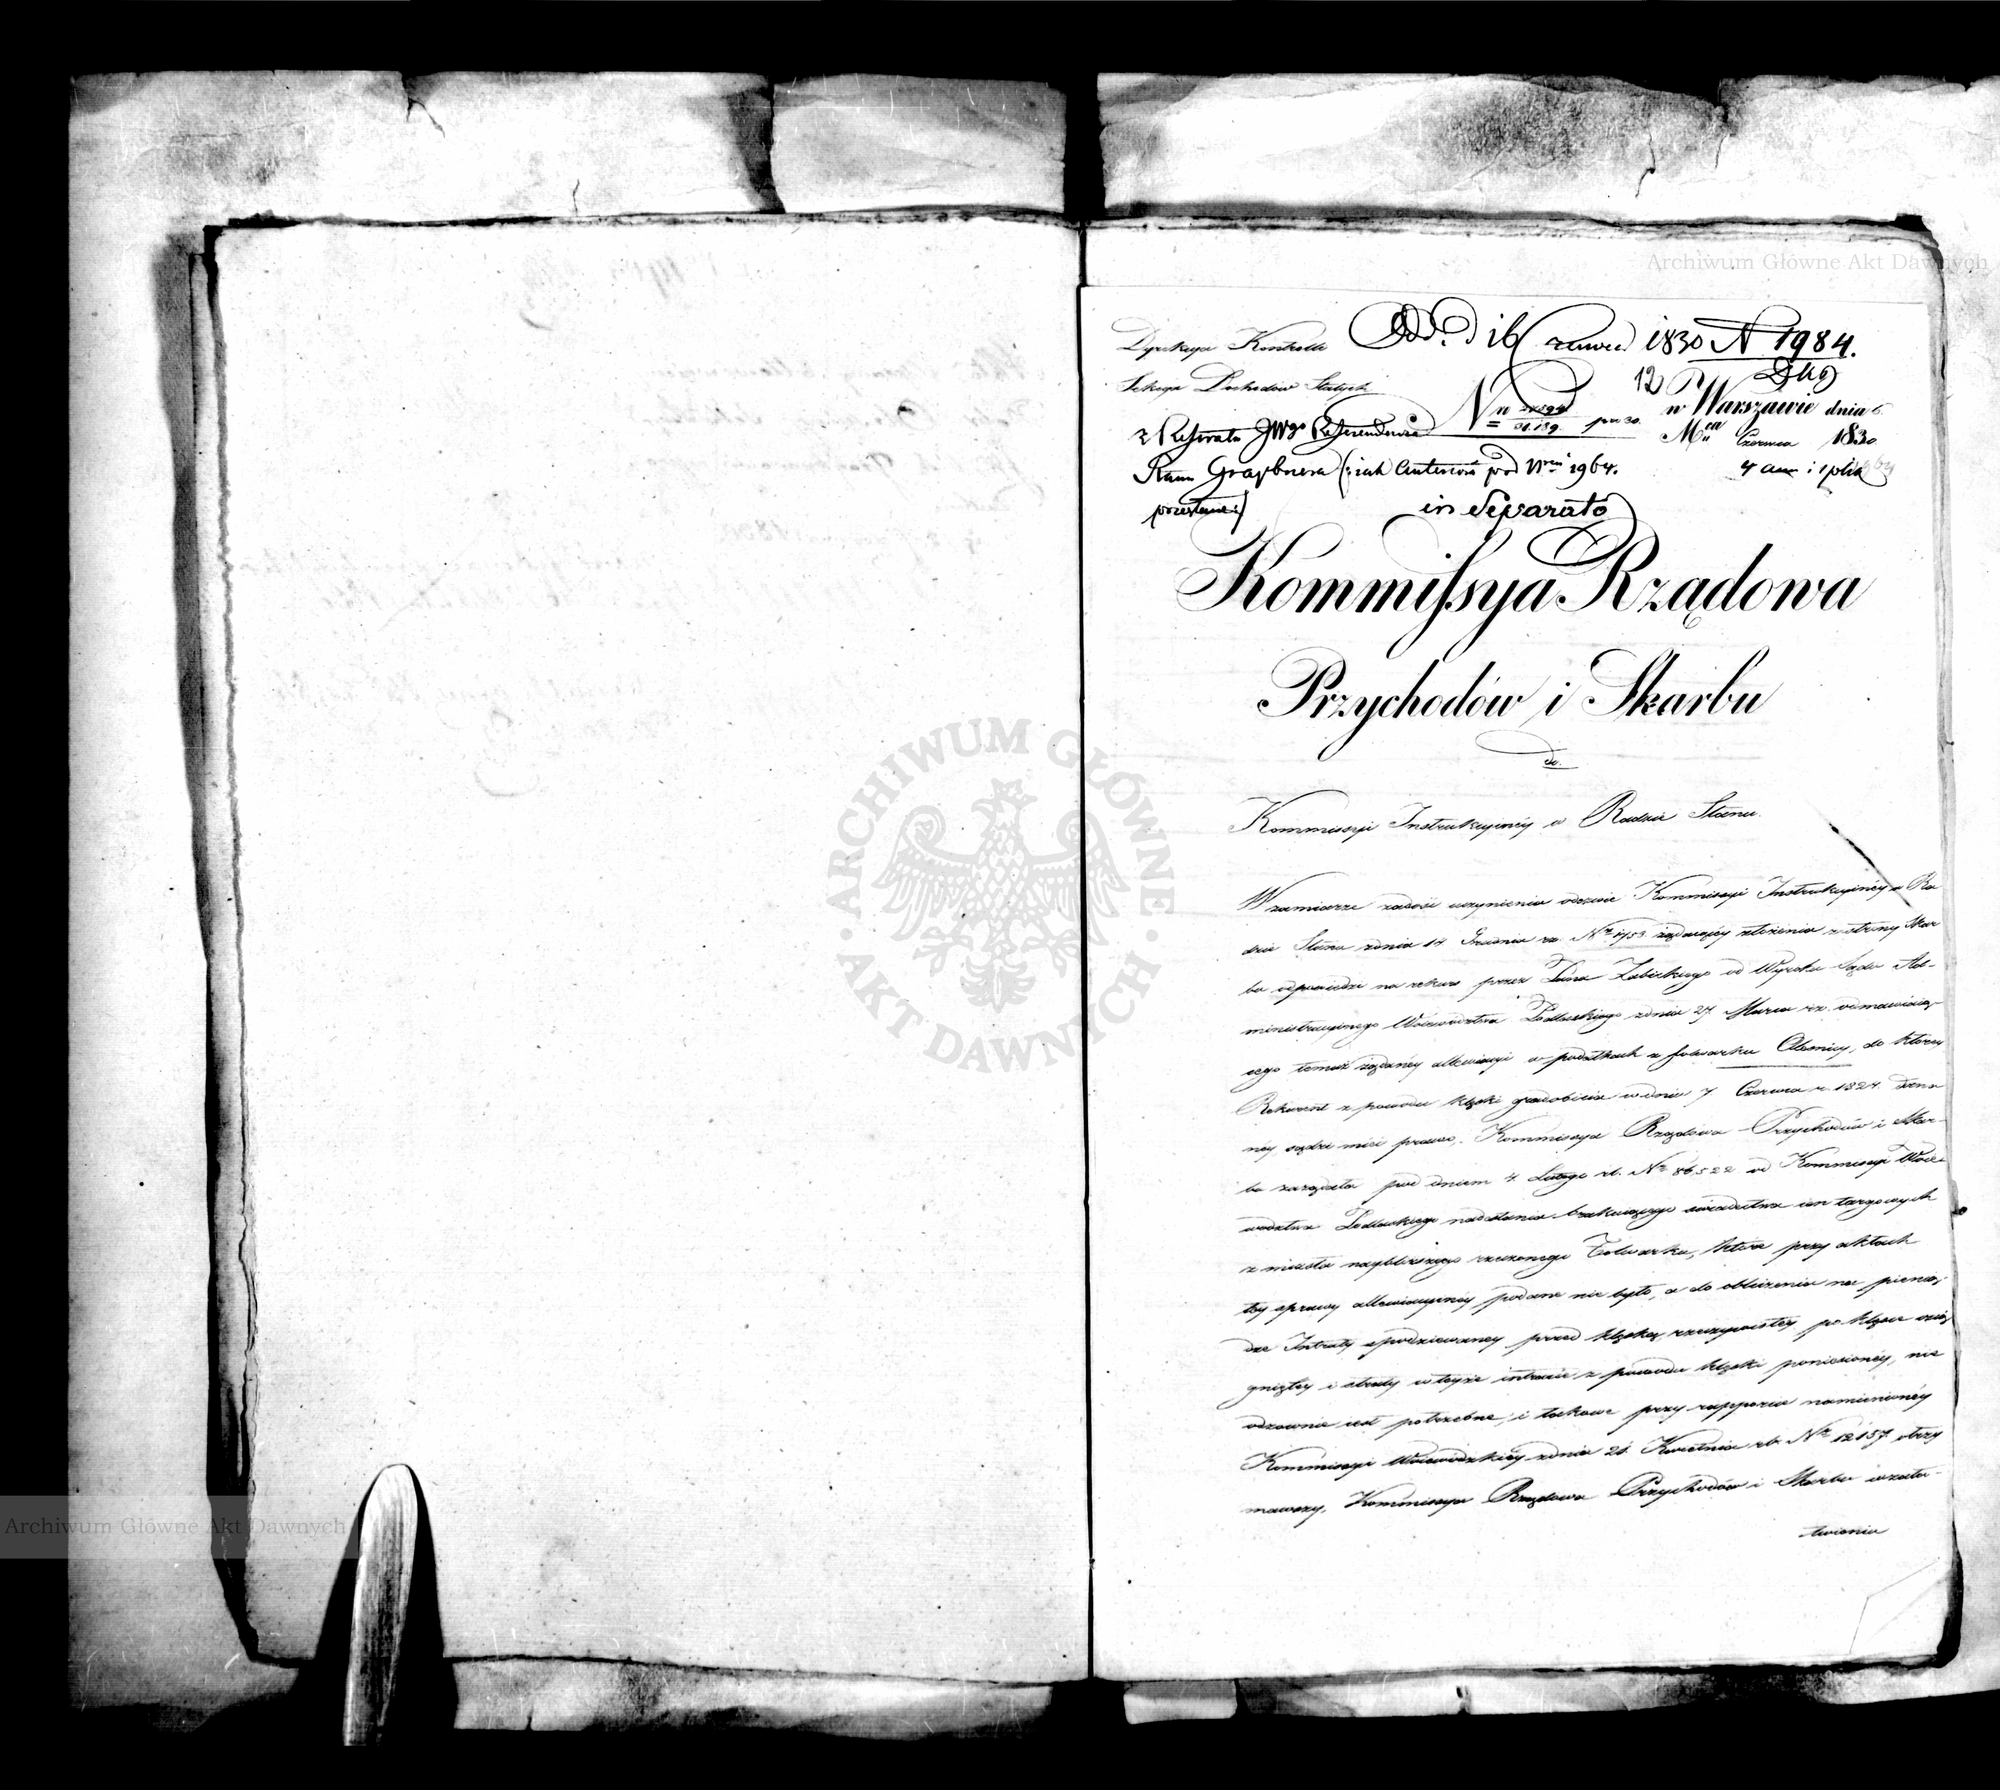 Archiwum Główne Akt Dawnych
Dyrekcya Kontrolli
Odd. d 16 Czerwca 1830 N 1984.
Sekcya Dochodów Stałych
12
w Warszawie dnia 6
z Referatu JWgo Referendarza
Mca Czerwca 1830
Stanu Graybnera (: iak anteriora pod Nrem 1964.
przesłane :)
in Separato
Kommissya Rządowa
Przychodów i Skarbu
do.
Kommissyi Instrukcyinéy w Radzie Stanu.
W zamiarze zadość uczynienia odezwie Kommissyi Instrukcyinéy w Ra
dzie Stanu z dnia 14 Grudnia rz. Nr 1753 żądaiącéy złożenia z strony Skar
bu odpowiedzi na rekurs przez Pana Zabielskiego od Wyroku Sądu Ad-
ministracyinego Województwa Podlaskiego z dnia 27 Marca rz. odmawiaią-
cego temuż żądanéy allewiacyi w podatkach z folwarku Olesnicy, do któréy
Rekurent z powodu klęski gradobicia w dniu 7 Czerwca r. 1827.
néy sądzi mieć prawo, Kommissya Rządowa Przychodów i Skar-
bu zażądała pod dniem 4 Lutego rb. Nr 86522 od Kommissyi Woie-
wództwa Podlaskiego nadesłania brakuiącego świadectwa cen targowych
z miasta naybliższego rzeczonego Folwarku, które przy aktach
téy sprawy allewiacyinéy podane nie było, a do obliczenia na pienią-
dze Intraty spodziewanéy przed klęską, rzeczywistéy po klęsce osią
gniętéy i straty w téyże intracie z powodu klęski poniesionéy, nie
odzownie iest potrzebne, i takowe przy rapporcie namienionéy
Kommissyi Woiewódzkiéy z dnia 21 Kwietnia rb. Nr 12157 otrzy
mawszy, Kommissya Rządowa Przychodów i Skarbu w zała-
twieniu
ARCHIWUM GŁÓWNE AKT DAWNYCH
Archiwum Główne Akt Dawnych